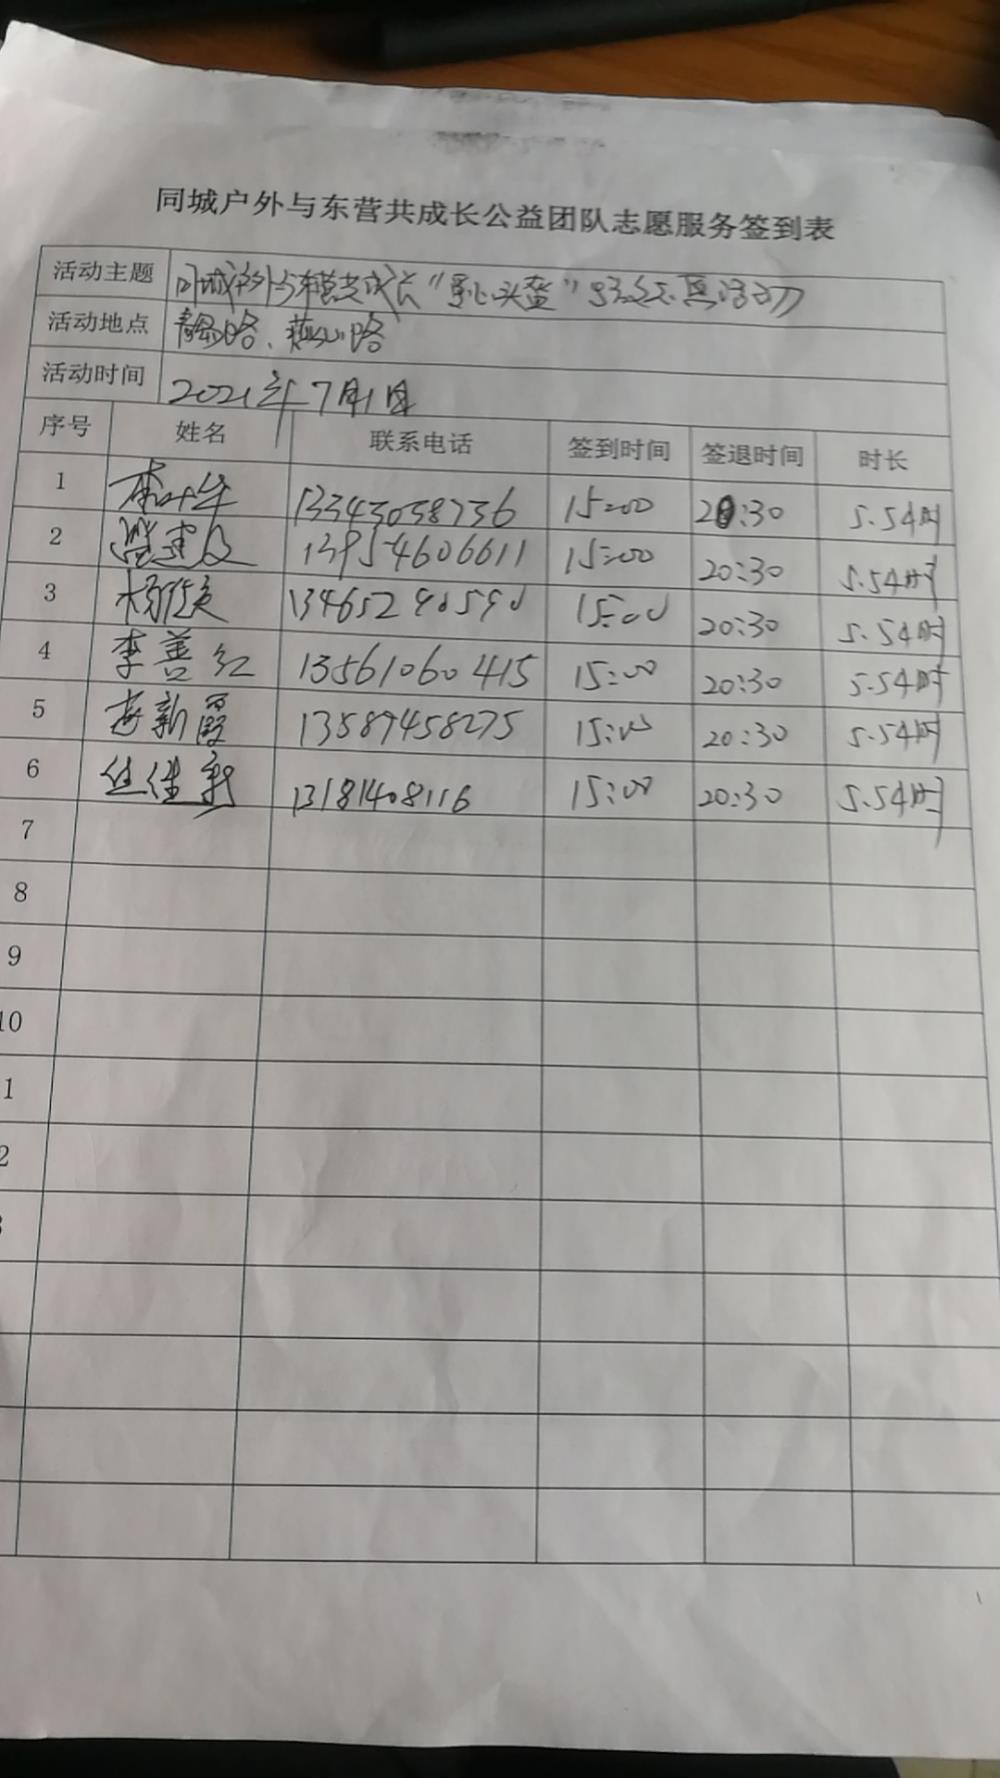 同城户外与东营共成长公益团队志愿服务签到表
活动主题 同城户外与东营共成长"爱心头盔"
活动地点 青岛路、燕山路
活动时间 2021年7月1日
序号 姓名 联系电话 签到时间 签退时间 时长
1 李叶华 13345038736 15:00 20:30 5.5小时
2 建 13954606611 15:00 20:30 5.5小时
3 杨 13465290590 15:00 20:30 5.5小时
4 李善红 13561060415 15:00 20:30 5.5小时
5 新霞 13589458275 15:00 20:30 5.5小时
6 任佳新 13181408116 15:00 20:30 5.5小时
7
8
9
10
1
2
3